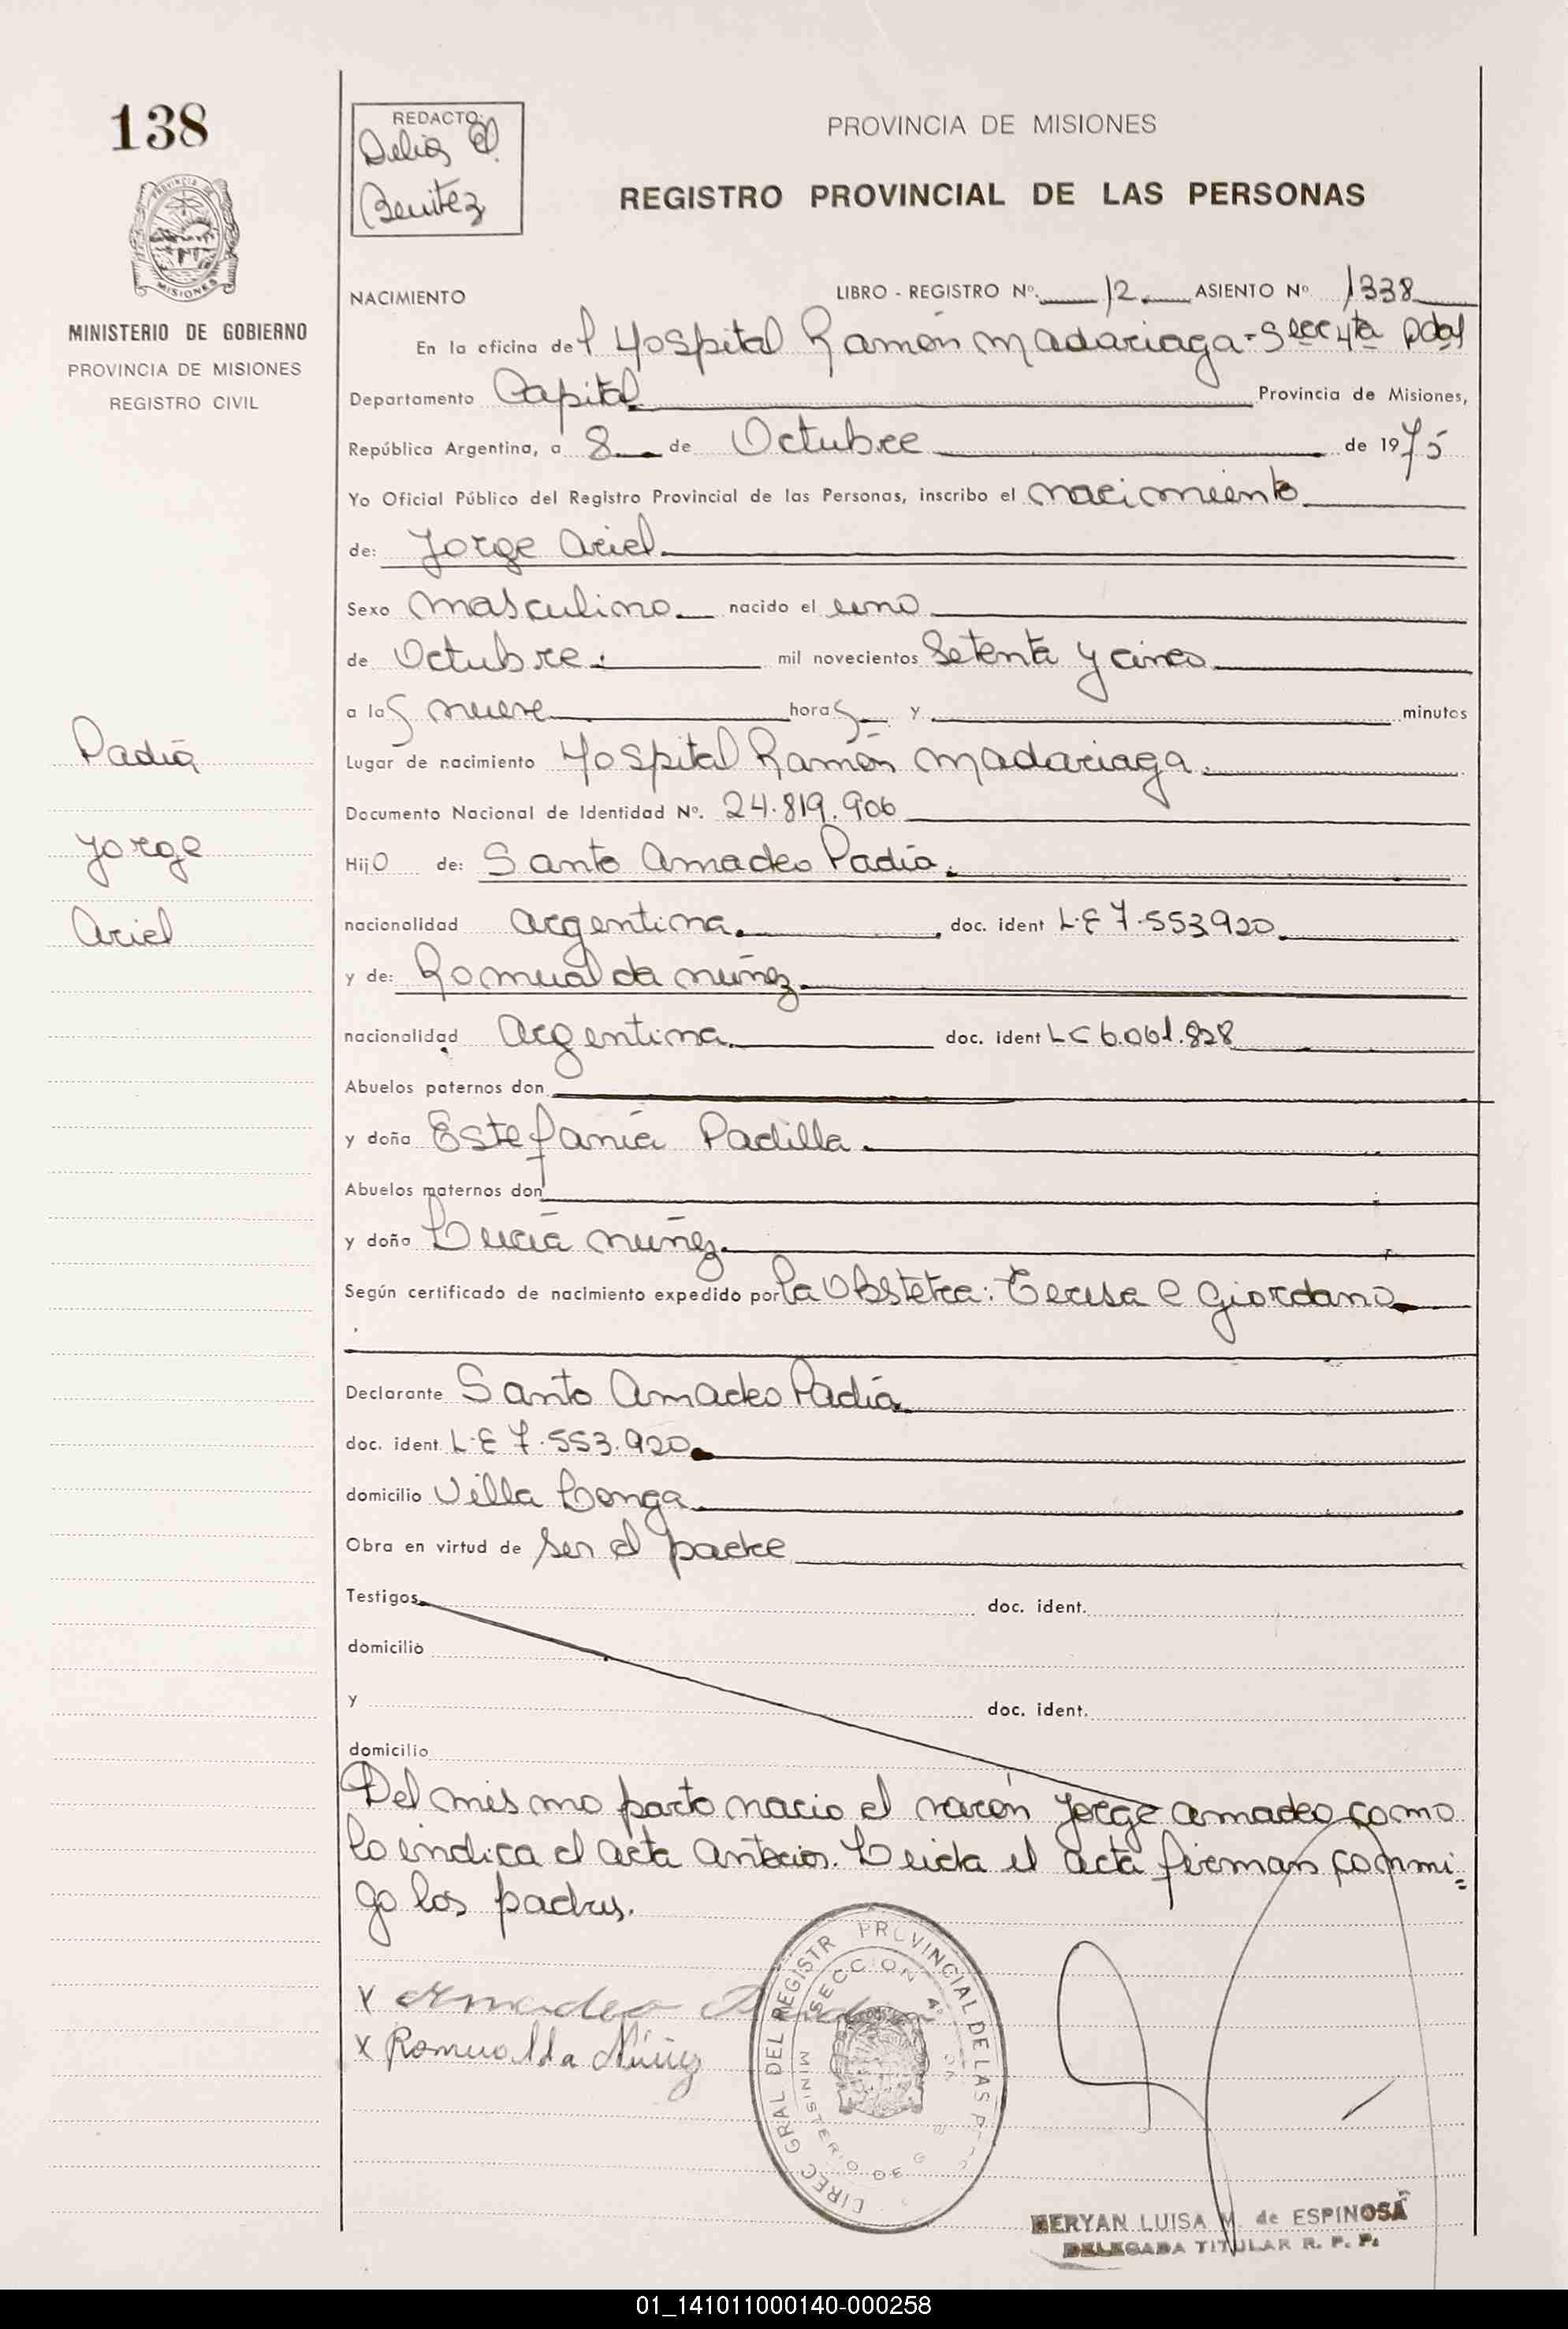 138
REDACTO:
Delia E.
Benitez
PROVINCIA DE MISIONES
REGISTRO PROVINCIAL DE LAS PERSONAS
PROVINCIA DE
MISIONES
MINISTERIO DE GOBIERNO
PROVINCIA DE MISIONES
REGISTRO CIVIL
NACIMIENTO LIBRO - REGISTRO Nº. 12 ASIENTO Nº 1338
En la oficina del Hospital Ramón Madariaga - Secc 4ta Pdas
Departamento Capital Provincia de Misiones,
República Argentina, a 8 de Octubre de 1975
Yo Oficial Público del Registro Provincial de las Personas, inscribo el nacimiento
de: Jorge Ariel
Sexo masculino nacido el uno
de Octubre. mil novecientos Setenta y cinco
a las nueve horas y minutos
Padiá
Jorge
Ariel
Lugar de nacimiento Hospital Ramón Madariaga.
Documento Nacional de Identidad Nº. 24.819.906
Hijo de: Santo Amadeo Padiá.
nacionalidad argentina. doc. ident L.E 7.553920
y de: Romualda Núñez
nacionalidad Argentina doc. ident LC 6.061.828
Abuelos paternos don
y doña Estefanía Padilla
Abuelos maternos don
y doña Lucía Núñez
Según certificado de nacimiento expedido por la Obstetra: Teresa C Giordano
Declarante Santo Amadeo Padiá
doc. ident L.E 7.553.920
domicilio Villa Longa
Obra en virtud de ser el padre
Testigos doc. ident.
domicilio
y doc. ident.
domicilio
Del mismo parto nacio el varón Jorge Amadeo como
lo indica el acta anterior. Leida el acta firman conmi=
go los padres.
x Amadeo Padia
x Romualda Núñez
DIREC GRAL DEL REGISTR PROVINCIAL DE LAS P
SECCION 4ª
MINISTERIO DE G
MERYAN LUISA M. de ESPINOSA
DELEGADA TITULAR R. P. P.
01_141011000140-000258